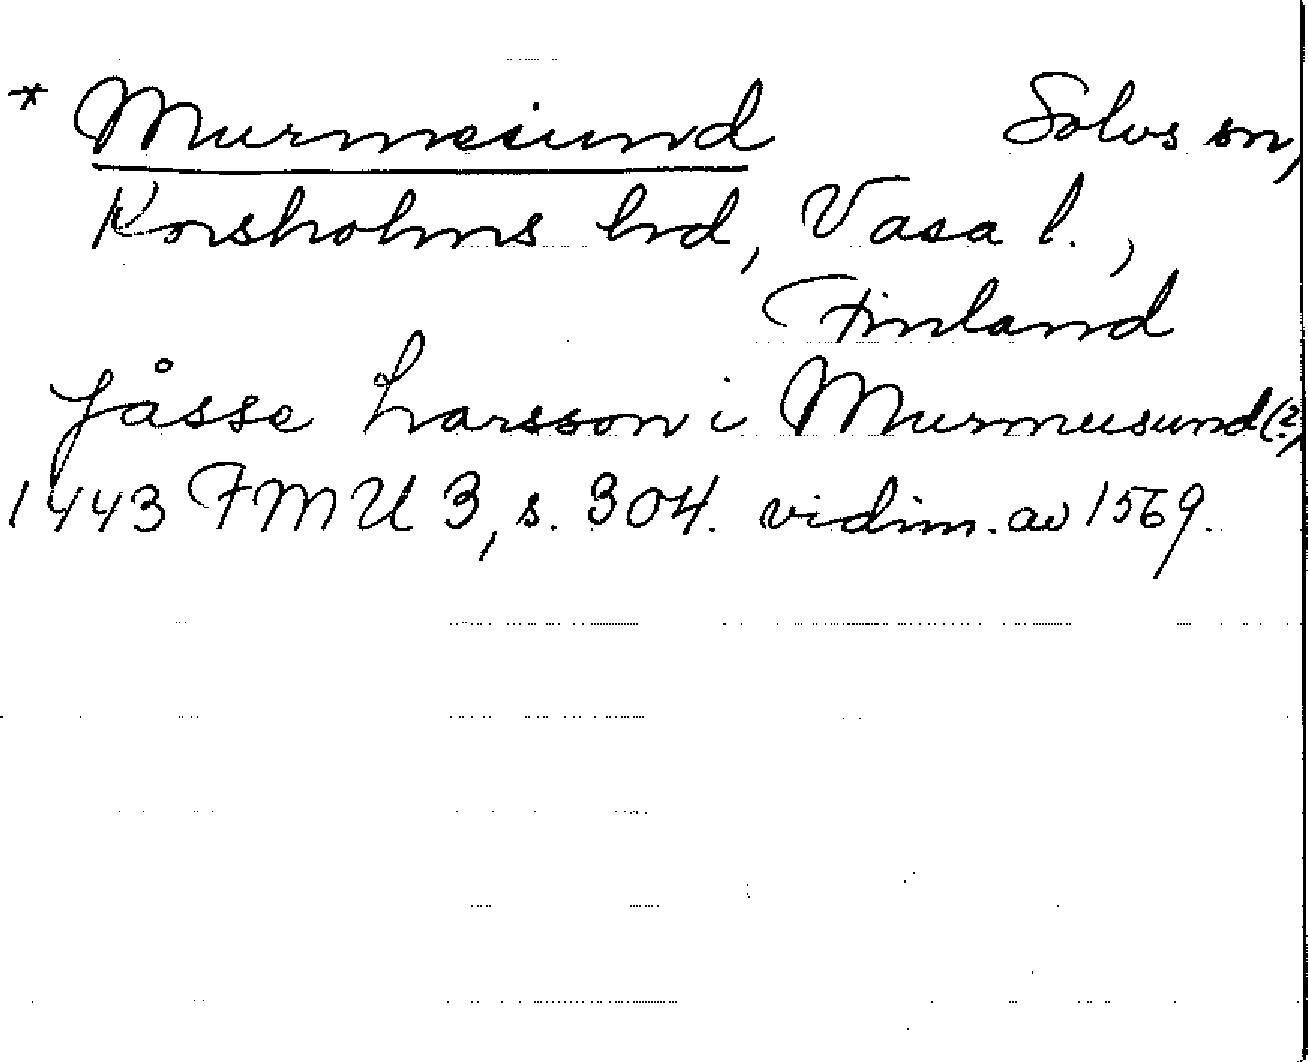 * Murmesund Solvs sn,
Korsholms hd, Vasa l.,
Finland
Jåsse Larsson i Murmusund (?)
1443 FMU 3, s. 304. vidim. av 1569.